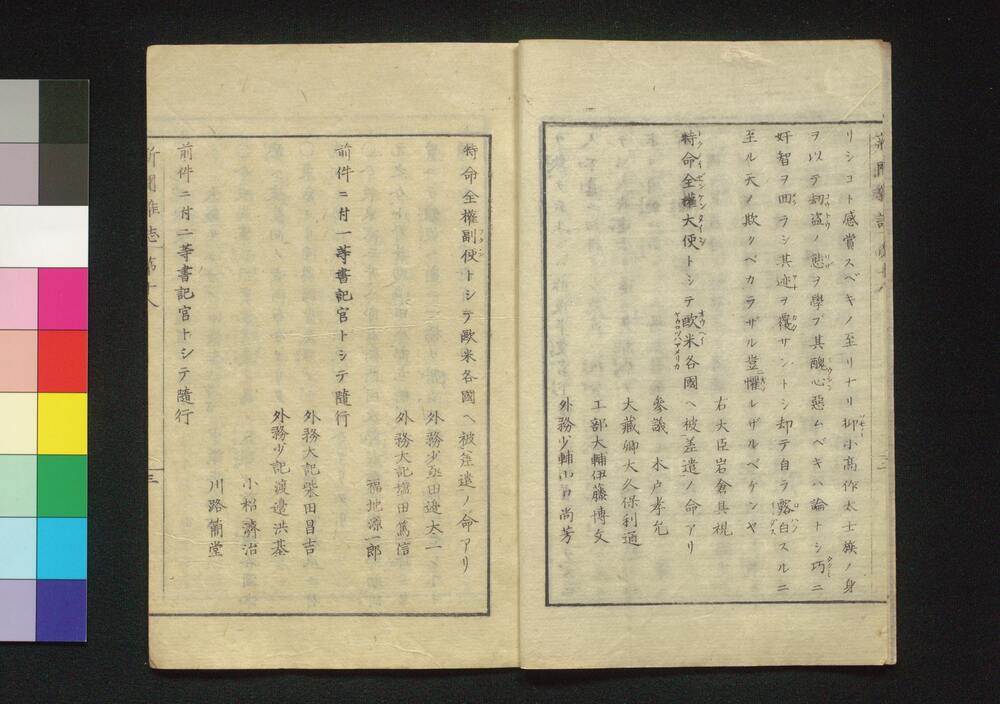 リシコト感賞スベキノ至リナリ抑小高作太士族ノ身
ヲ以テ刧盗ノ態ヲ學ブ其醜心惡ムベキハ論トシ巧ニ
奸智ヲ囬ラシ其迹ヲ覆ザントシ却テ自ラ露白スルニ
至ル天ノ欺クベカラザル豈懼レザルベケンヤ
特命全權大使トシテ歐米各國ヘ被差遣ノ命アリ
右大臣岩倉具視
參議 木戸孝允
大藏卿大久保利通
工部大輔伊藤博文
外務少輔山口尚芳
特命全權副使トシテ歐米各國ヘ被差遣ノ命アリ
外務少丞田邉太一
外務大記塩田篤信
福地源一郎
前件ニ付一等書記官トシテ隨行
外務大記柴田昌吉
外務少記渡邉洪基
小松濟治
川路簡堂
前件ニ付二等書記官トシテ隨行
新聞雜志 第十八 三